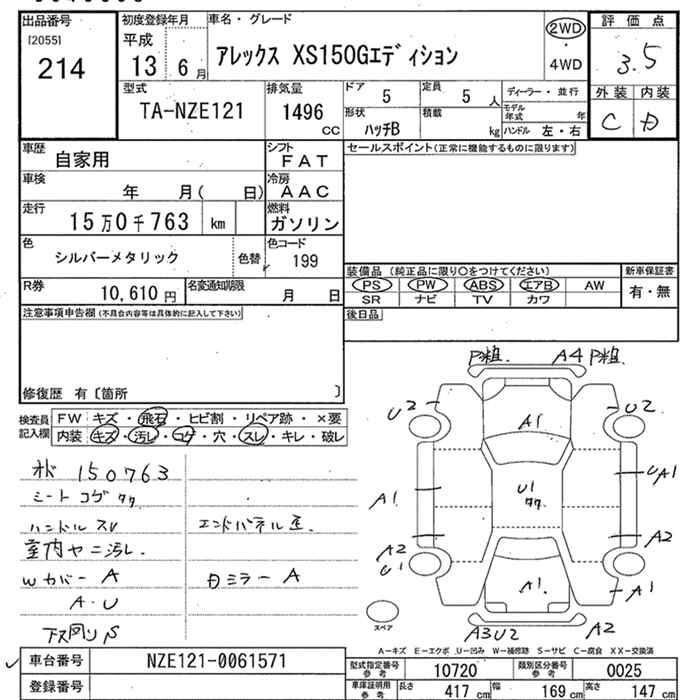 出品番号
[2055]
214
初度登録年月
平成
13 6月
車名・グレード
アレックス XS150Gエディション
2WD
・
4WD
評価点
3.5
外装 内装
C D
型式
TA-NZE121
排気量
1496
CC
ドア
5
定員
5 人
ディーラー・並行
形状
ハッチB
積載
kg
モデル年式 年
ハンドル 左・右
車歴
自家用
シフト
FAT
セールスポイント(正常に機能するものに限ります)
車検
年 月( 日)
冷房
AAC
走行
15万0千763 km
燃料
ガソリン
色
シルバーメタリック
色替
色コード
199
装備品 (純正品に限り○をつけてください)
新車保証書
PS PW ABS エアB AW
有・無
SR ナビ TV カワ
R券
10,610 円
名変通知期限
月 日
後日品
注意事項申告欄(不具合内容等は具体的に記入して下さい)
修復歴 有〔箇所 〕
検査員
記入欄
FW キズ・飛石・ヒビ割・リペア跡・×要
内装 キズ・汚レ・コゲ・穴・スレ・キレ・破レ
150763
シートコゲ
ハンドルスレ
エンドパネル
室内ヤニ汚レ
Wカバー A
Dミラー A
A・U
下廻りS
P粗 A4 P粗
U2 A1 U2
A1 U1 UA1
A2 A2
U1 A1 A1
A3U2 A2
スペア
A-キズ E-エクボ U-凹み W-補修跡 S-サビ C-腐食 XX-交換済
車台番号
NZE121-0061571
登録番号
型式指定番号
参考
10720
類別区分番号
参考
0025
車庫証明用
参考
長さ 417 cm 幅 169 cm 高さ 147 cm